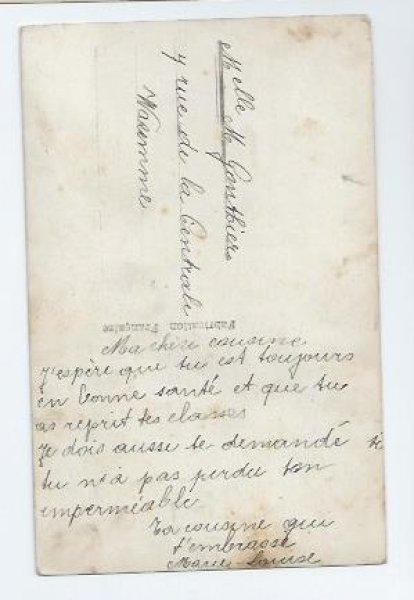 Melle M Gonthiers
7 rue de la Centrale
Wasemme
Fabrication Française
Ma chere cousine
J'espère que tu est toujours
en bonne santé et que tu
as reprit tes classes
Je dois aussi te demandé si
tu n'a pas perdu ton
imperméable
Ta cousine qui
t'embrasse
Marie-Louise